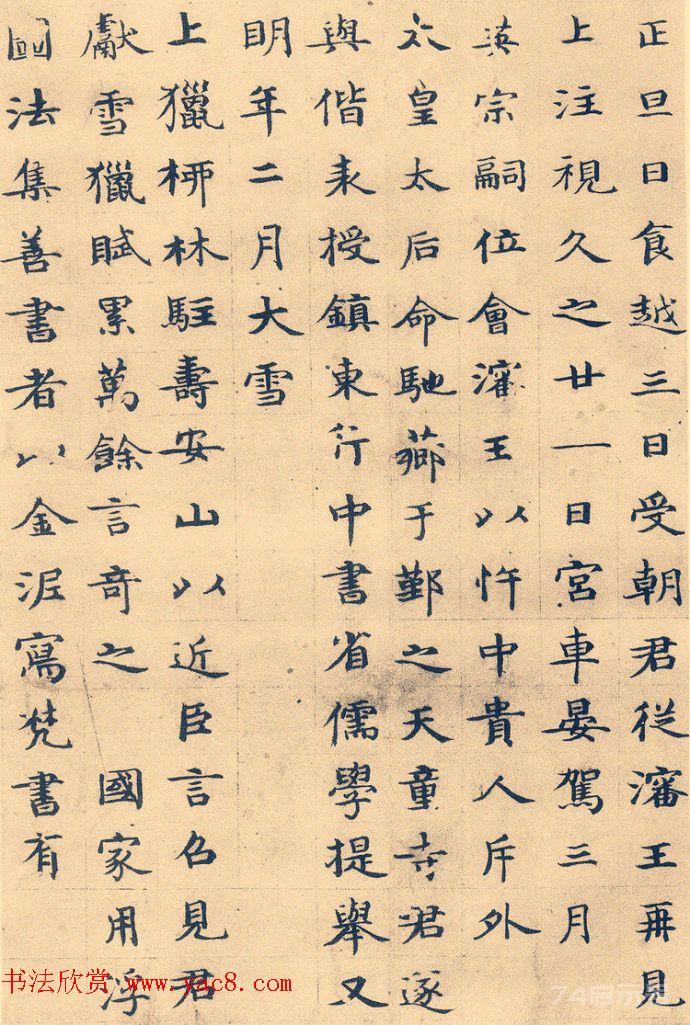 正旦日食越三日受朝君從瀋王再見
上注視久之廿一日宮車晏駕三月
英宗嗣位會瀋王以忤中貴人斥外
太皇太后命馳薌于鄞之天童寺君遂
與偕來授鎮東行中書省儒學提舉又
明年二月大雪
上獵桺林駐壽安山以近臣言召見君
獻雪獵賦累萬餘言奇之 國家用浮
圖法集善書者以金泥寫梵書有
书法欣赏 www.yac8.com